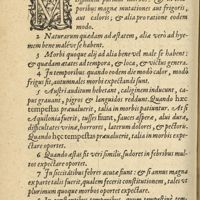 poribus magnæ mutationes aut frigoris,
aut caloris; & alia pro ratione eodem
modo.
2 Naturarum quædam ad æstatem, alia verò ad hye-
mem bene malè ve se habent.
3 Morbi quoque alij ad alia bene vel male se habent;
& quædam ætates ad tempora, & loca, & victus genera.
4 In temporibus quando eodem die modò calor, modò
frigus fit, autumnales morbos expectandi sunt.
5 Austri auditum hebetant, caliginem inducunt, ca-
put grauant, pigros & languidos reddunt. Quando hæc
tempestas præualuerit, talia in morbis patiuntur. At si
Aquilonia fuerit, tusses fiunt, fauces asperæ, alui duræ,
difficultates vrinæ, horrores, laterum dolores, & pectoris.
Quando hæc tempestas præualuerit, talia in morbis expe-
ctare oportet.
6 Quando æstas fit veri similis, sudores in febribus mul-
tos expectare oportet.
7 In siccitatibus febres acutæ fiunt: & si annus magna
ex parte talis fuerit, qualem fecerit constitutionem, tales vt
plurimum quoque morbos oportet expectare.